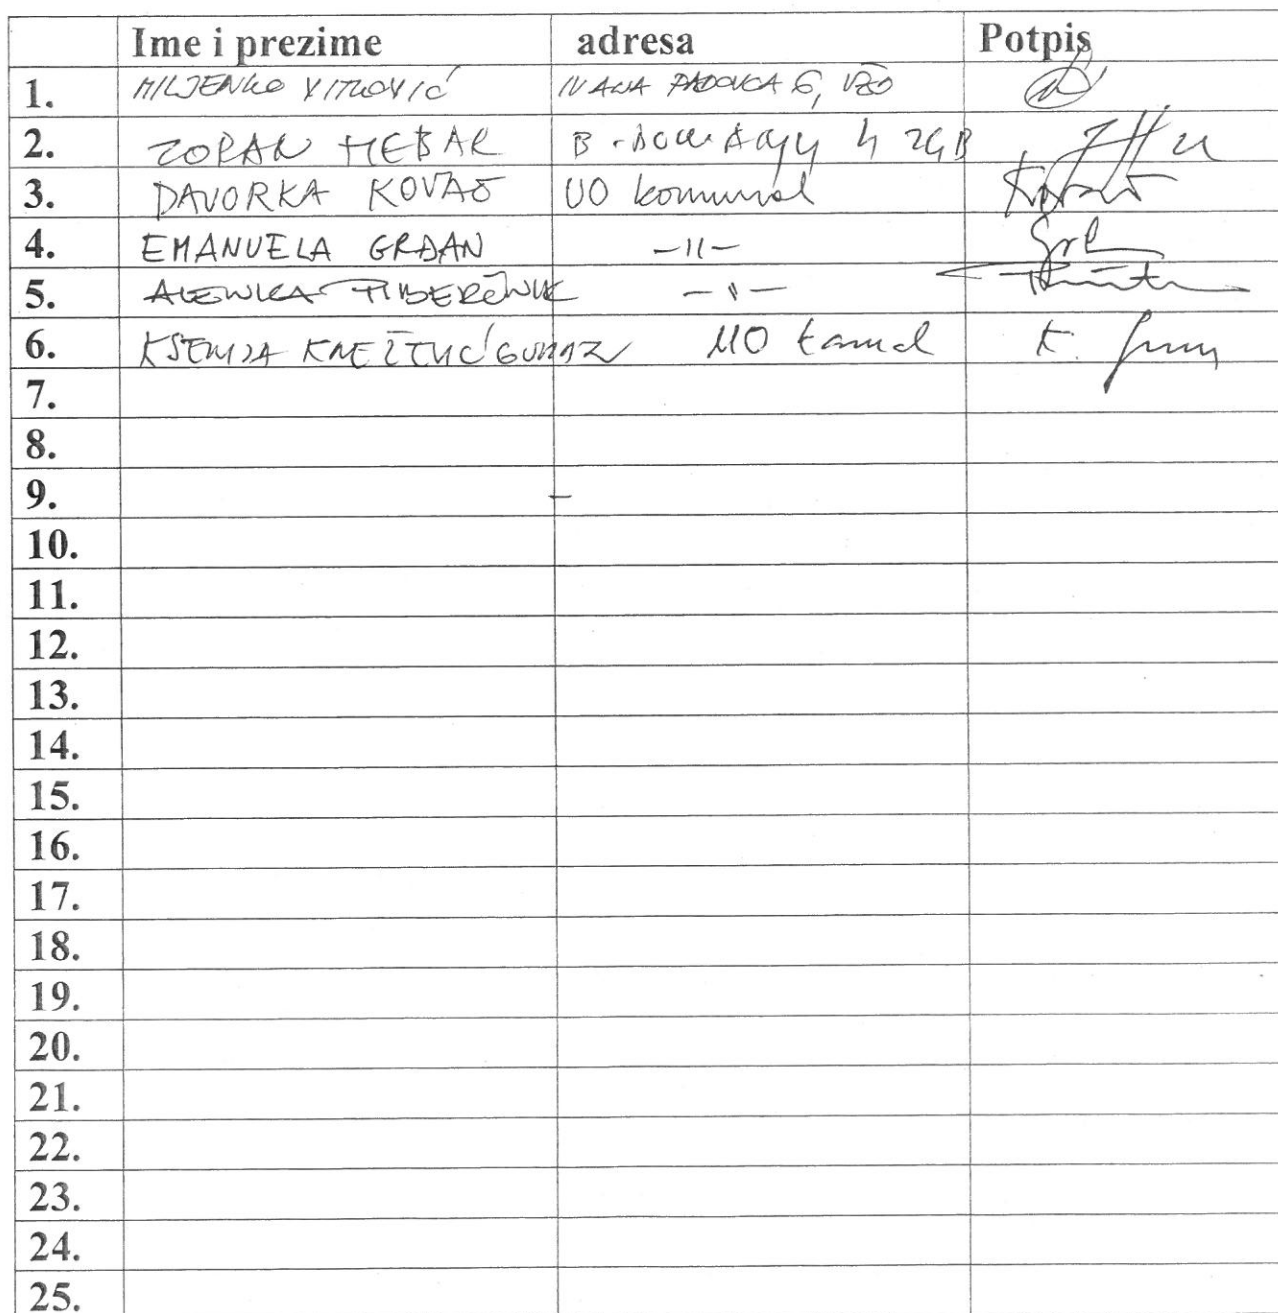 Ime i prezime adresa Potpis
1. MILJENKO VITKOVIĆ IVANA PADOVCA 6, VŽO
2. ZORAN HEBAR B. 4 ZGB
3. DAVORKA KOVAČ UO komunal
4. EMANUELA GRĐAN —11—
5. ALENKA —"—
6. KSENIJA UO K.
7.
8.
9.
10.
11.
12.
13.
14.
15.
16.
17.
18.
19.
20.
21.
22.
23.
24.
25.